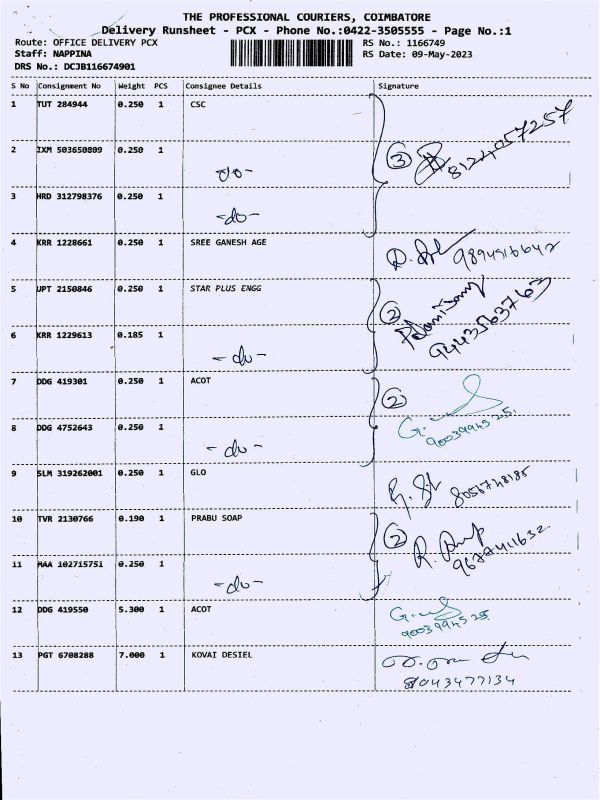 THE PROFESSIONAL COURIERS, COIMBATORE
Delivery Runsheet - PCX - Phone No.:0422-3505555 - Page No.:1
Route: OFFICE DELIVERY PCX RS No.: 1166749
Staff: NAPPINA RS Date: 09-May-2023
DRS No.: DCJB116674901
S No Consignment No Weight PCS Consignee Details Signature
1 TUT 284944 0.250 1 CSC
2 IXM 503650809 0.250 1 -do- 3 8124057257
3 HRD 312798376 0.250 1 -do-
4 KRR 1228661 0.250 1 SREE GANESH AGE
5 UPT 2150846 0.250 1 STAR PLUS ENGG 2
6 KRR 1229613 0.185 1 -do- 9443563763
7 DDG 419301 0.250 1 ACOT 2
8 DDG 4752643 0.250 1 -do- 9003994525.
9 SLM 319262001 0.250 1 GLO
10 TVR 2130766 0.190 1 PRABU SOAP 2
11 MAA 102715751 0.250 1 -do- 9677411632
12 DDG 419550 5.300 1 ACOT 9003994525.
13 PGT 6708288 7.000 1 KOVAI DESIEL
8043477134